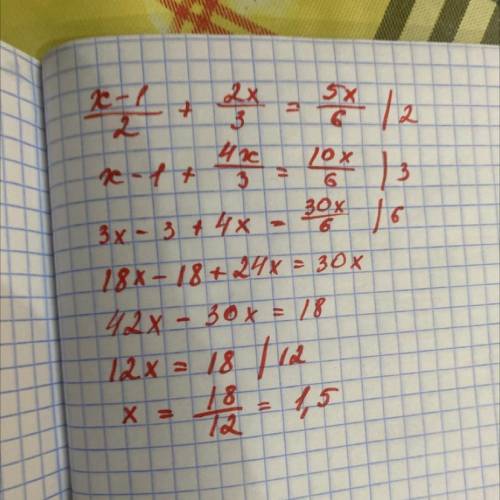 x-1/2 + 2x/3 = 5x/6 | 2
x-1 + 4x/3 = 10x/6 | 3
3x-3+4x = 30x/6 | 6
18x-18+24x=30x
42x-30x=18
12x=18 | 12
x = 18/12 = 1,5